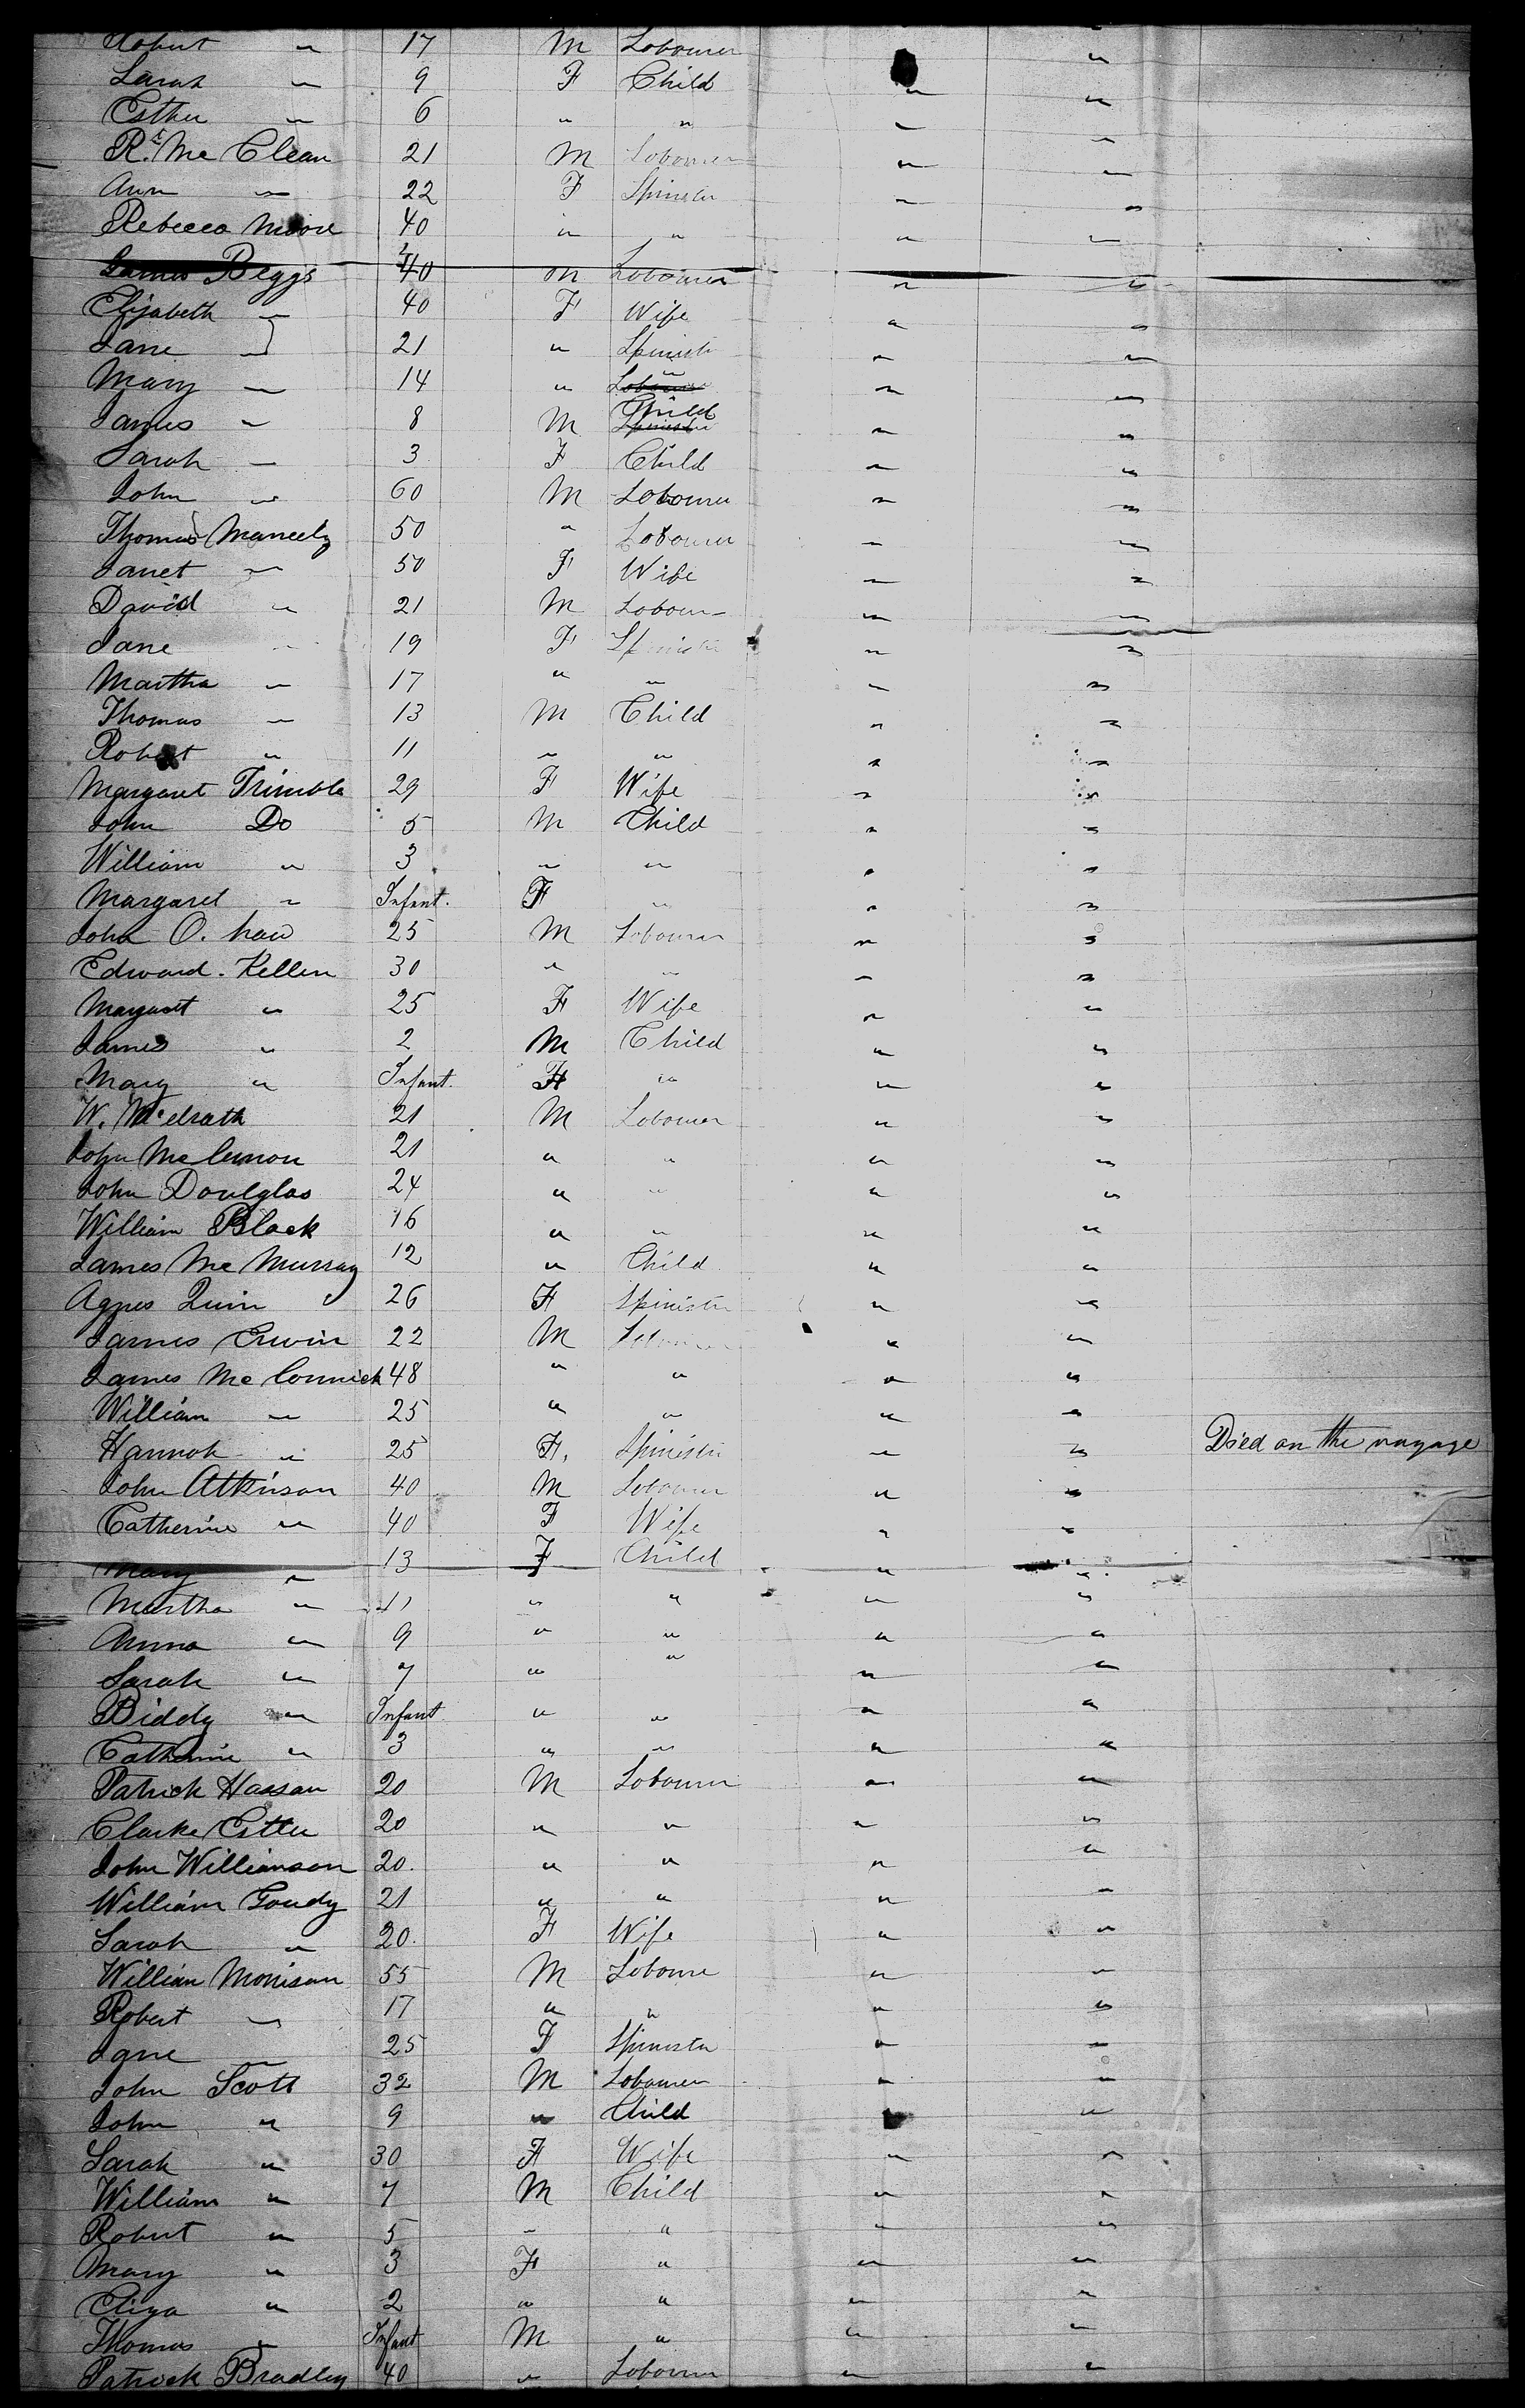 Robert " 17 M Labourer " "
Sarah " 9 F Child " "
Esther " 6 " " " "
Rt. Mc Clean 21 M Labourer " "
Ann " 22 F Spinster " "
Rebecca Moore 40 " " " "
James Beggs 40 M Labourer " "
Elizabeth " 40 F Wife " "
Jane " 21 " Spinster " "
Mary " 14 " " Labourer " "
James " 8 M Child Spinster " "
Sarah " 3 F Child " "
John " 60 M Labourer " "
Thomas Maneely 50 " Labourer " "
Janet " 50 F Wife " "
David " 21 M Labourer " "
Jane " 19 F Spinster " "
Martha " 17 " " " "
Thomas " 13 M Child " "
Robert " 11 " " " "
Margaret Trimble 29 F Wife " "
John Do 5 M Child " "
William " 3 " " " "
Margaret " Infant. F " " "
John O. 25 M Labourer " "
Edward. Kellen 30 " " " "
Margaret " 25 F Wife " "
James " 2 M Child " "
Mary " Infant. F " " "
W. Mcelrath 21 M Labourer " "
John Mc 21 " " " "
John Doulglas 24 " " " "
William Black 16 " " " "
James Mc Murray 12 " Child " "
Agnes Quin 26 F Spinister " "
James Erwin 22 M Labourer " "
James Mc Cormick 48 " " " "
William " 25 " " " "
Hannah " 25 F. Spinister " " Died on the voyage
John Atkinson 40 M Labourer " "
Catherine " 40 F Wife " "
Mary " 13 F Child " "
Martha " 11 " " " "
Anna " 9 " " " "
Sarah " 7 " " " "
Biddy " Infant " " " "
Catherine " 3 " " " "
Patrick Hassan 20 M Labourer " "
Clarke 20 " " " "
John Williamson 20. " " " "
William Goudy 21 " " " "
Sarah " 20. F Wife " "
William Morrison 55 M Laboure " "
Robert " 17 " " " "
Jane " 25 F Spinster " "
John Scott 32 M Labourer " "
John " 9 " Child " "
Sarah " 30 F Wife " "
William " 7 M Child " "
Robert " 5 " " " "
Mary " 3 F " " "
Eliza " 2 " " " "
Thomas " Infant M " " "
Patrick Bradley 40 " Labourer " "